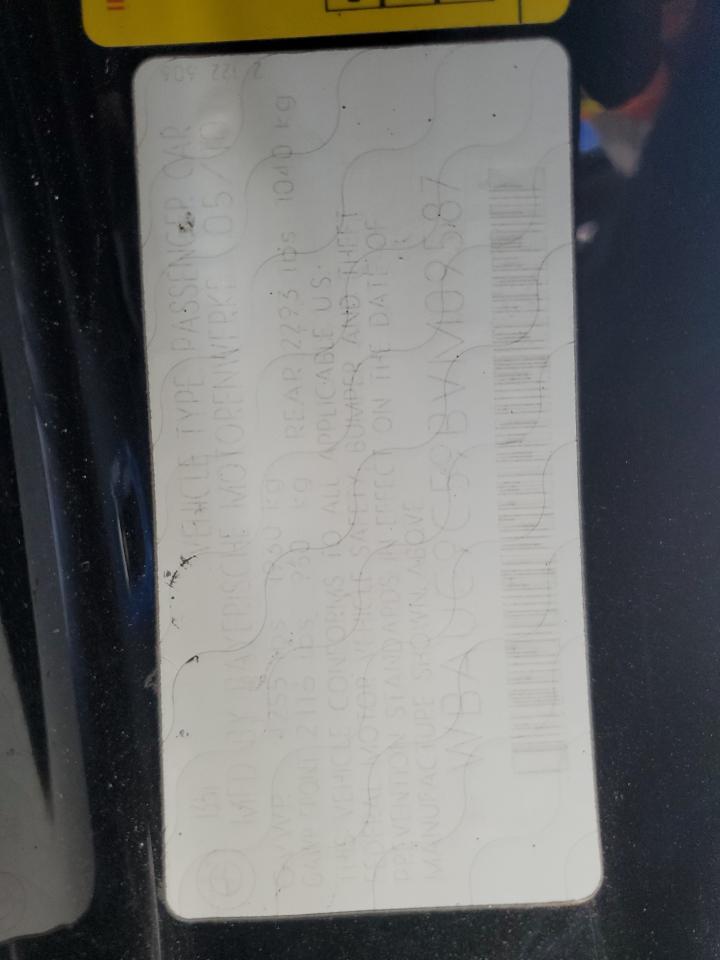 VEHICLE TYPE PASSENGER CAR
MFD BY BAYERISCHE MOTORENWERKE 05/10
GVWR 4255 lbs 1930 kg
GAWR FRONT 2116 lbs 960 kg REAR 2293 lbs 1040 kg
THIS VEHICLE CONFORMS TO ALL APPLICABLE U.S.
FEDERAL MOTOR VEHICLE SAFETY BUMPER AND THEFT
PREVENTION STANDARDS IN EFFECT ON THE DATE OF
MANUFACTURE SHOWN ABOVE